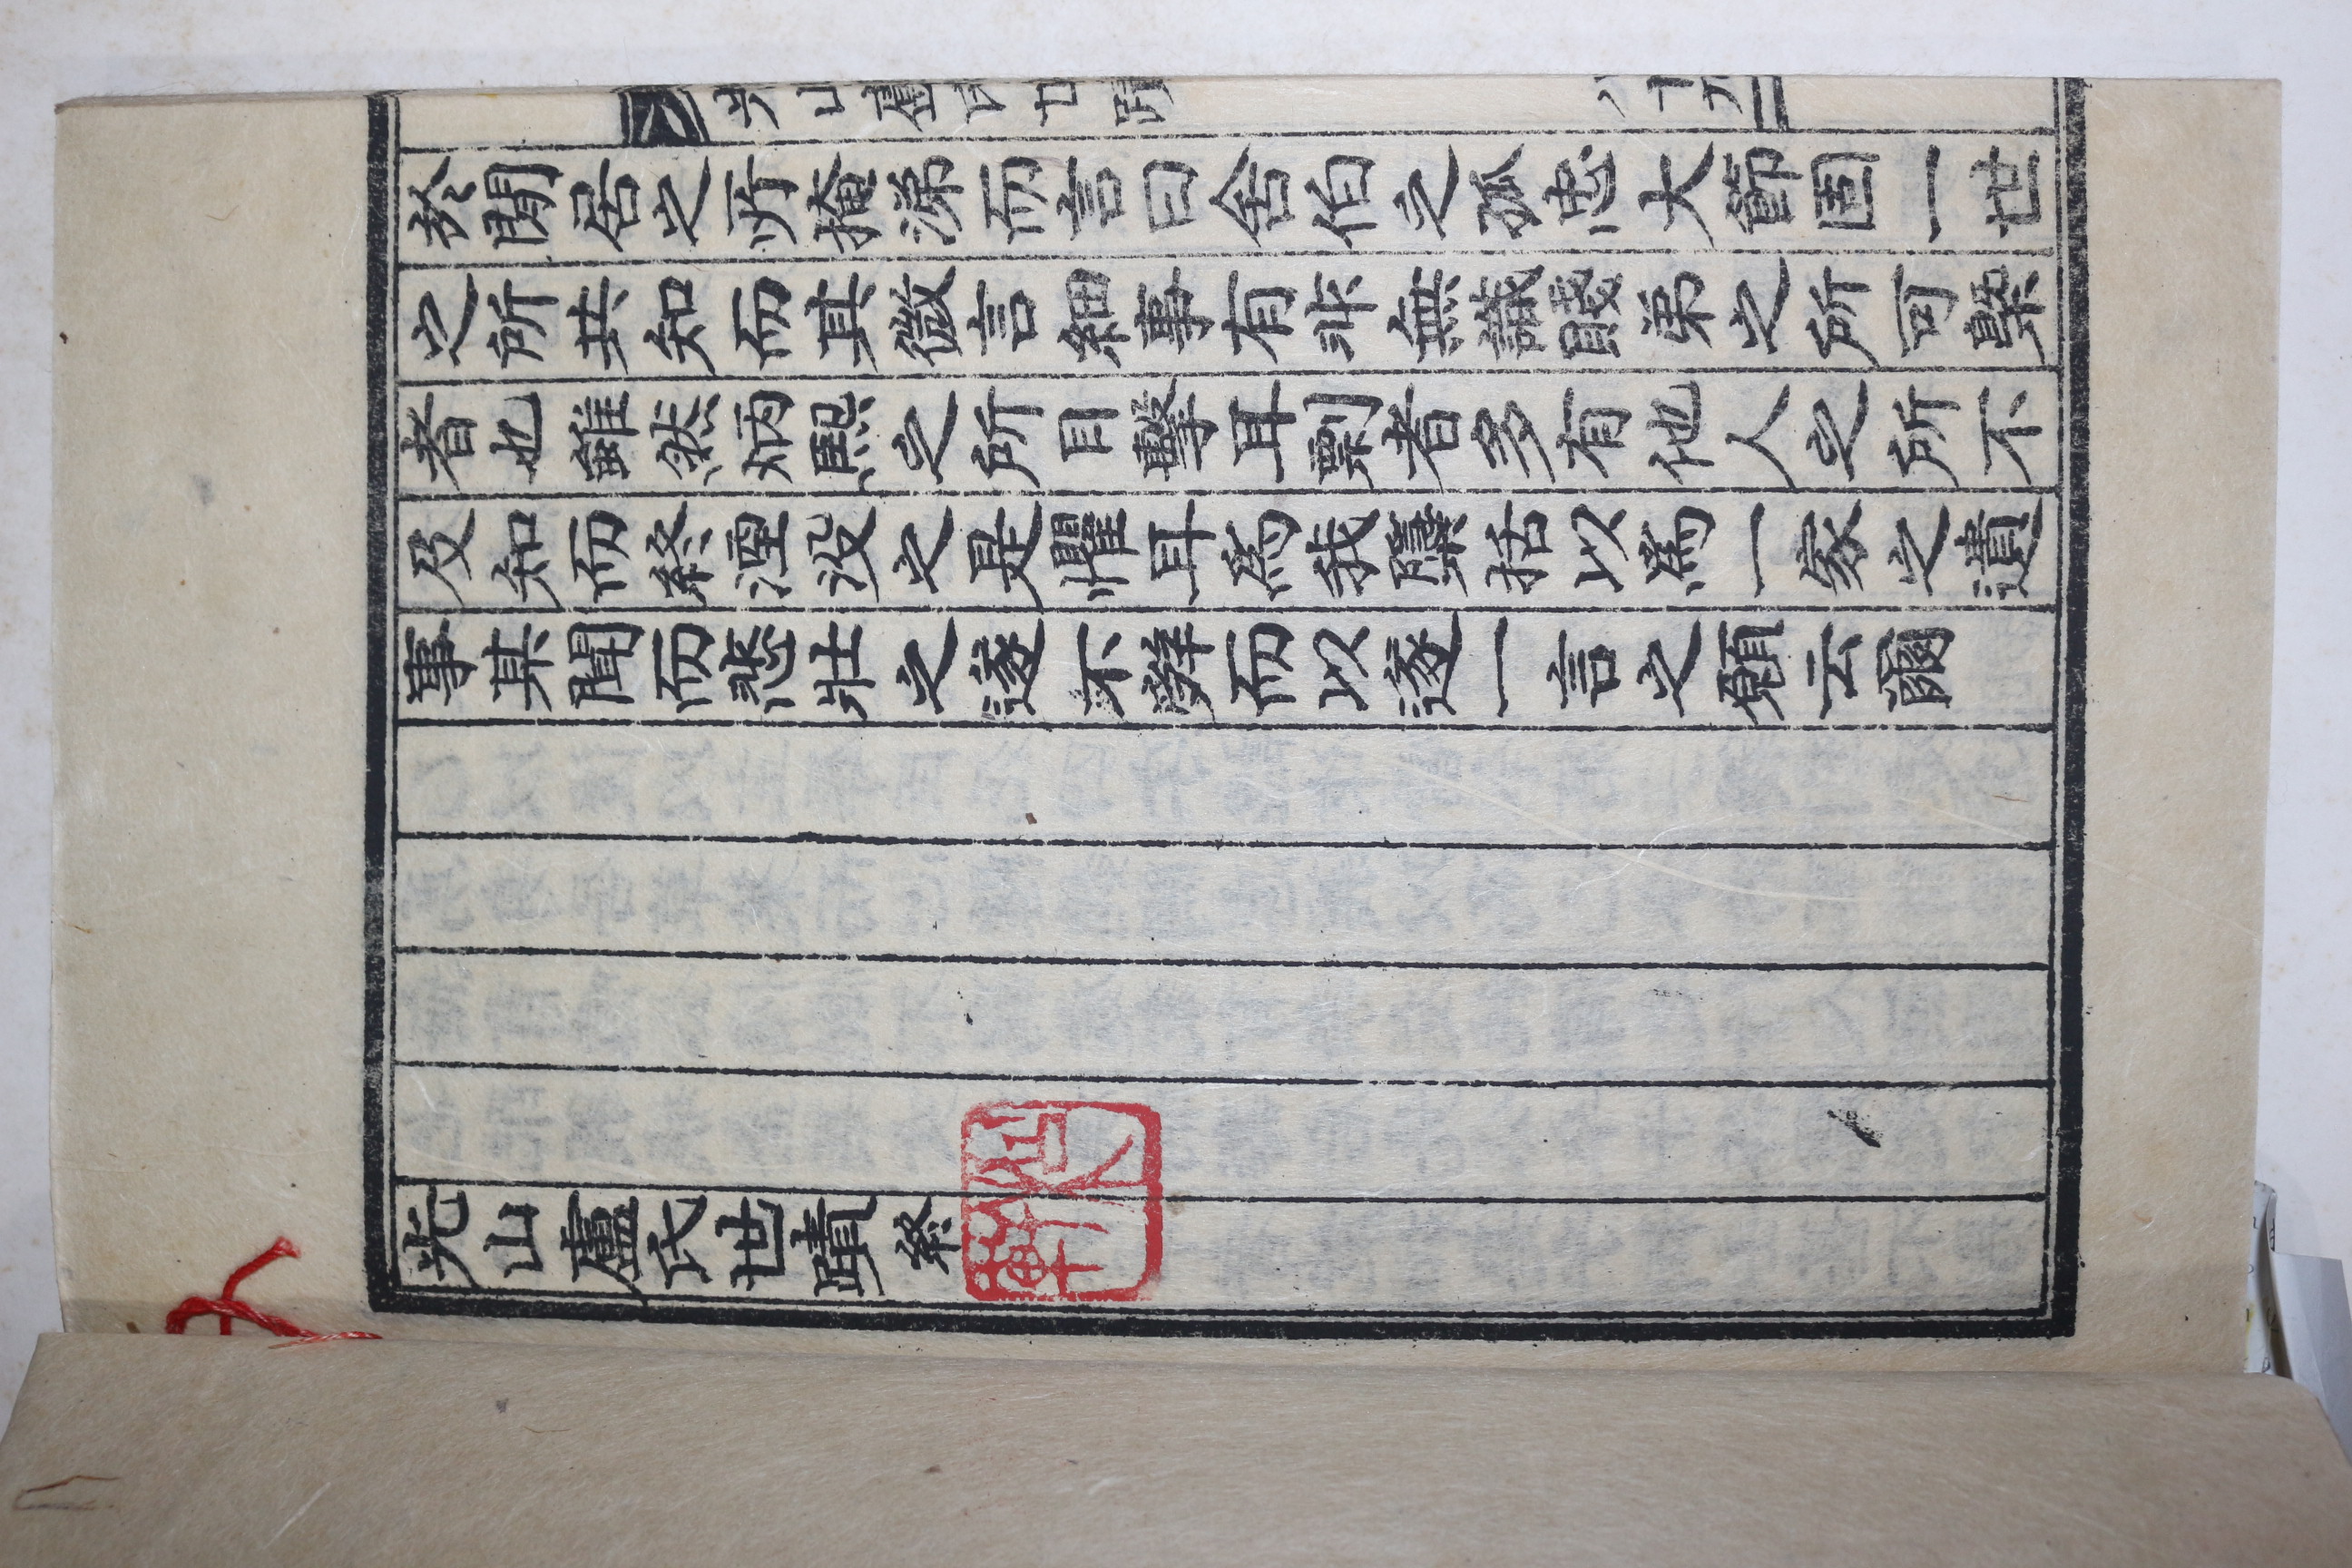 光山盧氏世蹟 八十九
於閒居之所掩涕而言曰舍伯之孤忠大節固一世
之所共知而其微言細事有非無識賤弟之所可槩
者也雖然炳熙之所目擊耳剽者多有他人之所不
及知而終湮没之是懼耳爲我櫽括以爲一家之遺
事某聞而悲壯之遂不辭而以遂一言之願云爾
光山盧氏世蹟終